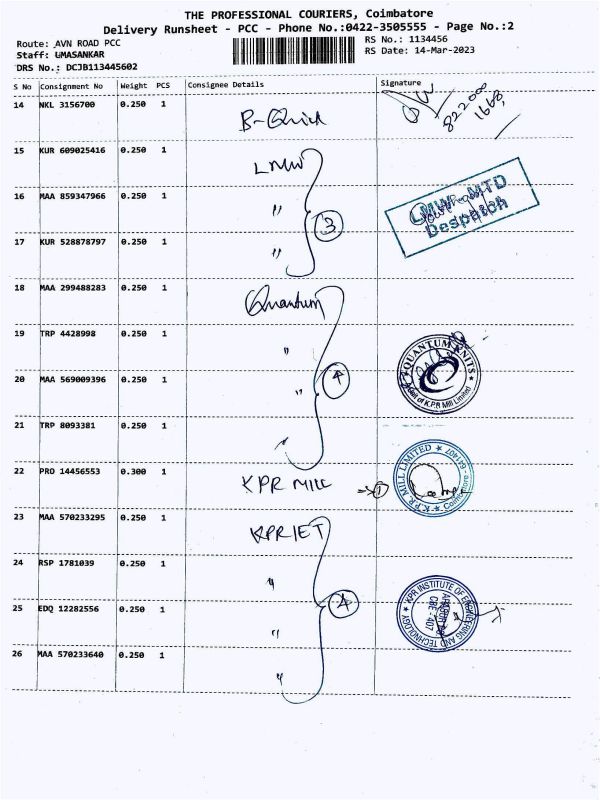 THE PROFESSIONAL COURIERS, Coimbatore
Delivery Runsheet - PCC - Phone No.:0422-3505555 - Page No.:2
Route: AVN ROAD PCC
RS No.: 1134456
Staff: UMASANKAR
RS Date: 14-Mar-2023
DRS No.: DCJB113445602
S No Consignment No Weight PCS Consignee Details Signature
14 NKL 3156700 0.250 1 B-Quick
822000
1668,
15 KUR 609025416 0.250 1 LMW
16 MAA 859347966 0.250 1 "
3
LMW-MTD
Despatch
17 KUR 528878797 0.250 1 "
18 MAA 299488283 0.250 1 Quantum
19 TRP 4428998 0.250 1 "
QUANTUM KNITS
Unit of K.P.R Mill Limited
20 MAA 569009396 0.250 1 "
4
21 TRP 8093381 0.250 1 "
22 PRO 14456553 0.300 1 KPR MILL
1
K.P.R. MILL LIMITED
Coimbatore - 641407
23 MAA 570233295 0.250 1 KPRIET
24 RSP 1781039 0.250 1 "
4
KPR INSTITUTE OF ENGINEERING AND TECHNOLOGY
CBE - 407
25 EDQ 12282556 0.250 1 "
26 MAA 570233640 0.250 1 "